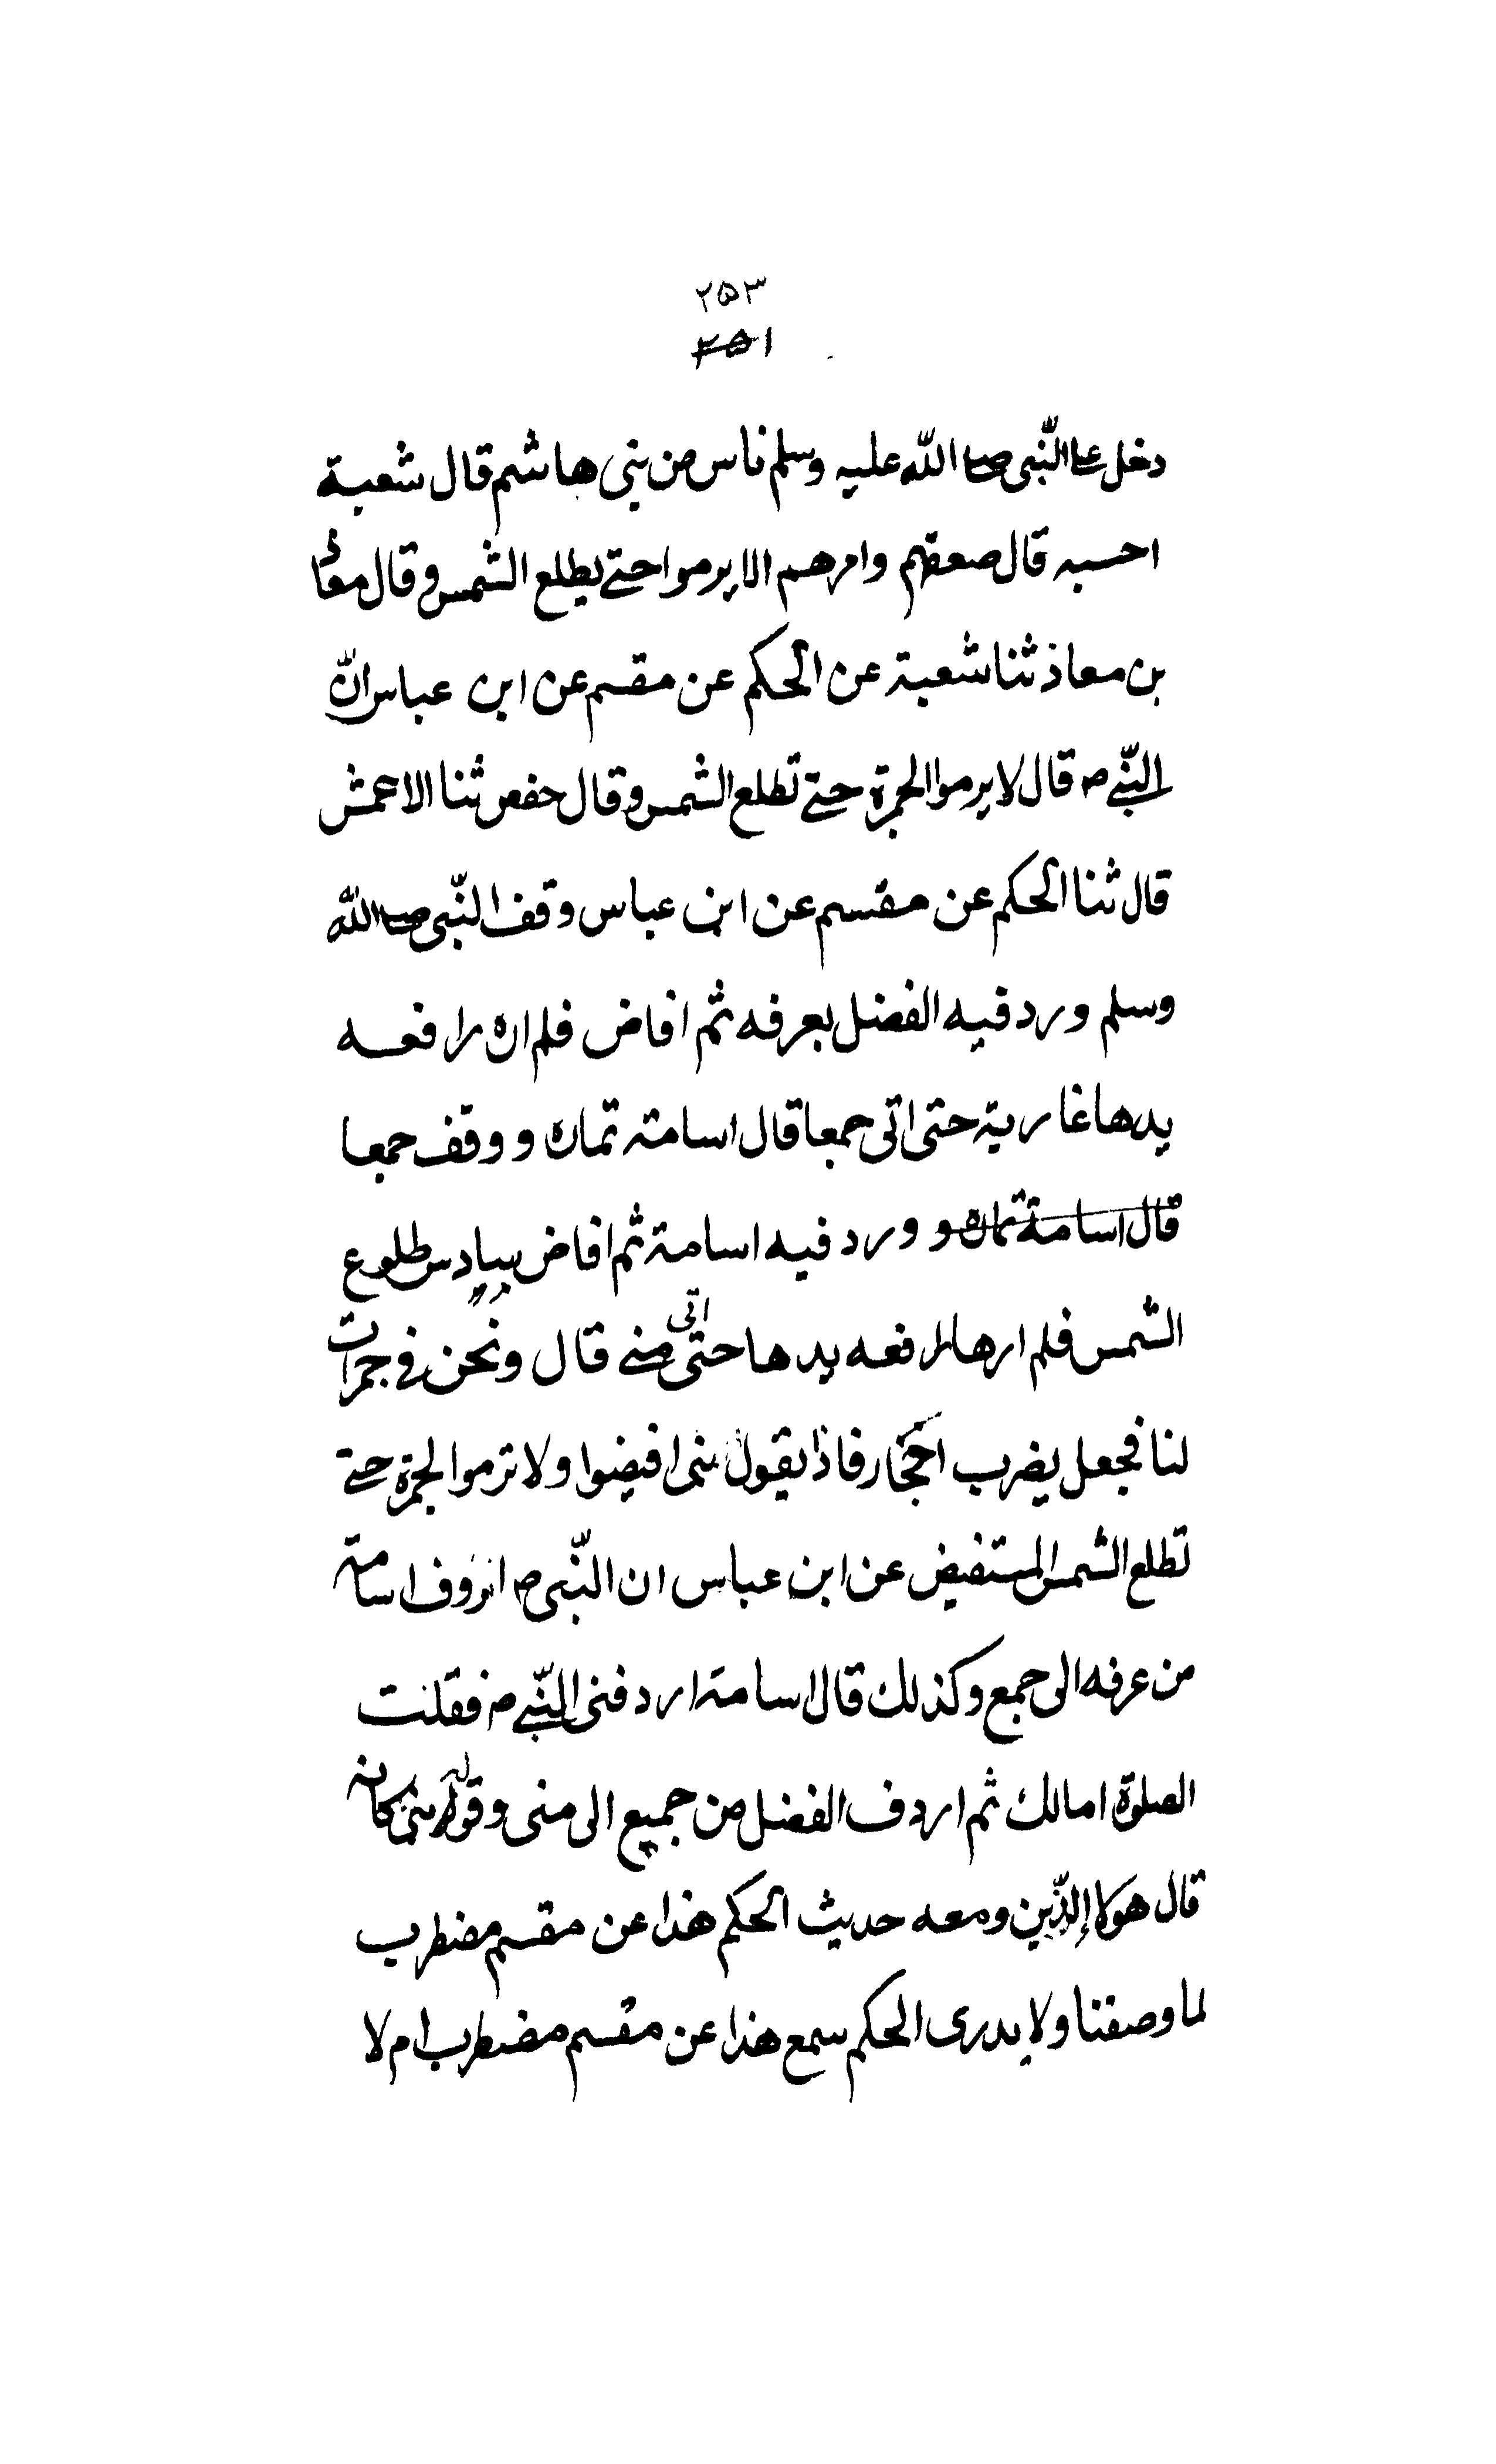 ٢٥٣
٢٥١
دخل على النّبى صلى اللّه عليه وسلم ناس من بنى هاشم قال شعبة
احسبه قال ضعفهم وامرهم الا يرموا حتے يطلع الشمس وقال معاذ
بن معاذ ثنا شعبة عن الحكم عن مقسم عن ابن عباس انّ
النّبے ص قال لا يرموا الجمرة حتے تطلع الشمس وقال حفص ثنا الاعمش
قال ثنا الحكم عن مقسم عن ابن عباس وقف النّبى صلى اللّه
وسلم وردفيه الفضل بعرفه ثم افاض فلم ان رافعه
يدها غارية حتى اتى جمعا قال اسامة تمان و ووقف جمعا
قال اسامة تمان و وردفيه اسامة ثم افاض بيادس طلوع
الشمس فلم ارها رافعه يدها حتى اتى منے قال ونحن فے جمرات
لنا فجعل يضرب افخار فاذا يقول بنى افيضوا ولا ترموا الجمرة حتے
تطلع الشمس المستفيض عن ابن عباس ان النّبى ص اردف اسامة
من عرفه الى جمع وكذلك قال اسامة اردفنى النّبے ص فقلت
الصلوة امالك ثم اردف الفضل من جميع الى منى وقوله بنى كانه
قال هولاء الذّين ومعه حديث الحكم هذا عن مقسم مضطرب
لما وصفنا ولا يدرى الحكم سمع هذا عن مقسم مضطرب ام لا